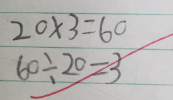 20×3=60
60÷20=3